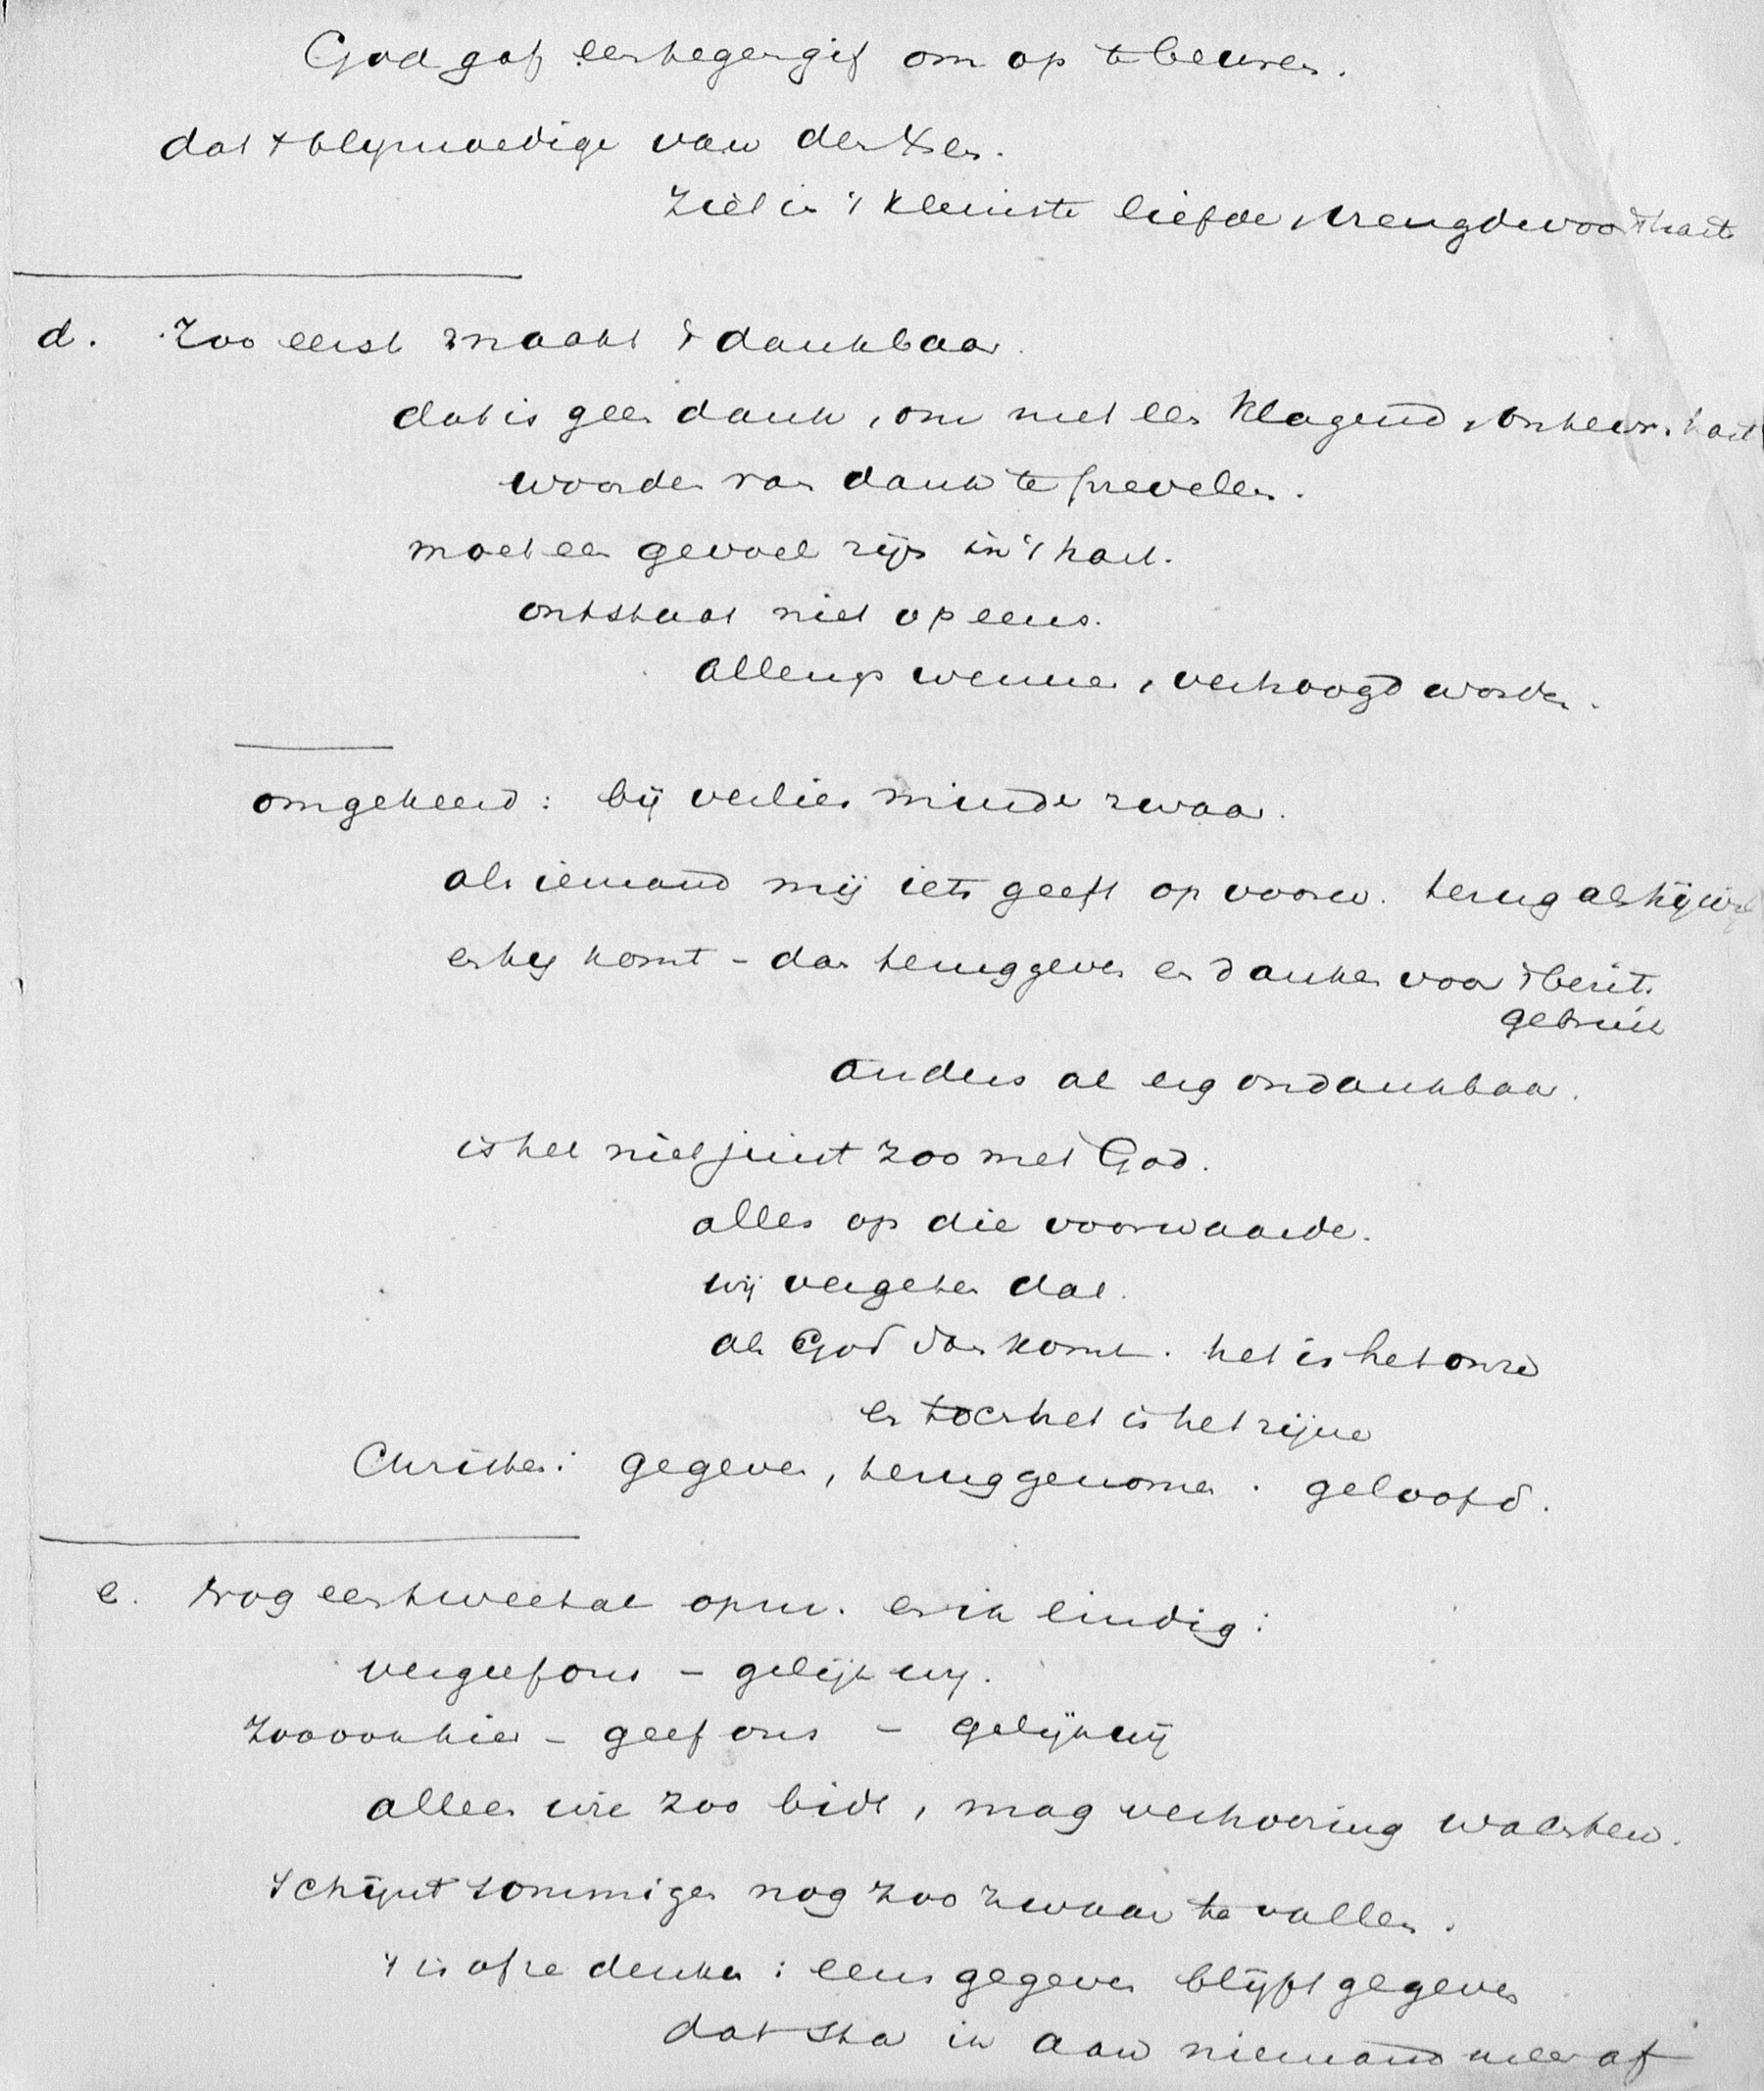 God gaf een tegengif om op te beuren.
dat 't blymoedige van den Xen.
Ziet in 't kleinste liefde, vreugde voor 't hart
d. Zoo eerst maakt 't dankbaar.
dat is geen dank, om met een klagend, ontevr. hart
woorden van dank te prevelen.
moet een gevoel zijn in 't hart.
ontstaat niet opeens.
allengs wennen, verhoogd worden.
omgekeerd: bij verlies minder zwaar.
als iemand mij iets geeft op voorw. terug als hij wil
en hij komt - dan teruggeven en danken voor 't bezit.
gebruik
anders al erg ondankbaar.
is het niet juist zoo met God.
alles op die voorwaarde.
wij vergeten dat.
als God dan komt. het is het onze
en toch het is het zijne
Christen: gegeven, teruggenomen. geloofd.
e. Nog een tweetal opm. en ik eindig:
vergeef ons - gelijk wij.
Zoo ook hier - geef ons - gelijk wij
alleen wie zoo bidt, mag verhooring wachten.
schijnt sommigen nog zoo zwaar te vallen.
't is of ze denken: eens gegeven blijft gegeven
dat sta ik aan niemand meer af